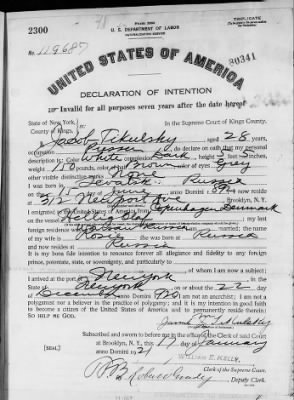 2300
Form 2203
U. S. DEPARTMENT OF LABOR
NATURALIZATION SERVICE
TRIPLICATE
No. 119687
30341
UNITED STATES OF AMERICA
DECLARATION OF INTENTION
Invalid for all purposes seven years after the date hereof
State of New York,
County of Kings,
In the Supreme Court of Kings County.
I, Jacob Tikulsky, aged 28 years,
occupation Presser, do declare on oath that my personal
description is: Color White, complexion Dark, height 5 feet 5 inches,
weight 110 pounds, color of hair Brown, color of eyes Grey
other visible distinctive marks None
I was born in Russia
on the day of June, anno Domini; I now reside
at 312 Newport Ave, Brooklyn, N. Y.
I emigrated to the United States of America from Copenhagen Denmark
on the vessel; my last
foreign residence was Warsaw Russia; I am married; the name
of my wife is Rosie; she was born at Russia
and now resides at Russia
It is my bona fide intention to renounce forever all allegiance and fidelity to any foreign
prince, potentate, state, or sovereignty, and particularly to
of whom I am now a subject;
I arrived at the port of New York, in the
State of New York, on or about the 22 day
of, anno Domini; I am not an anarchist; I am not a
polygamist nor a believer in the practice of polygamy; and it is my intention in good faith
to become a citizen of the United States of America and to permanently reside therein:
SO HELP ME GOD.
Tikulsky
Subscribed and sworn to before me in the office of the Clerk of said Court
at Brooklyn, N. Y., this day of January
anno Domini 1921
[SEAL.]
WILLIAM E. KELLY,
Clerk of the Supreme Court.
Deputy Clerk.